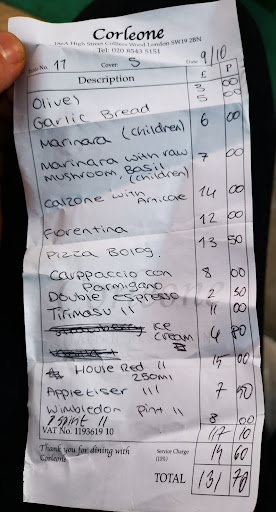 Corleone
High Street Colliers Wood London SW19 2BN
Tel: 020 8543 5151
Table No. 17 Cover: 5 Date 9/10
Description £ P
Olives 3 00
Garlic Bread 5 00
Marinara (children) 6 00
Marinara with raw 7 00
mushroom, Basil
(children)
Calzone with 14 00
Fiorentina 12 00
Pizza Bolog. 13 50
Carppaccio con 8 00
Parmigano
Double espresso 2 50
Tirimasu II 11 00
Ice 4 80
cream
House Red II 15 00
250ml
Appletiser III 7 50
Wimbledon Pint II
8 00
VAT No. 1193619 10 117 10
Thank you for dining with Service Charge 14 60
Corleone
TOTAL 131 70